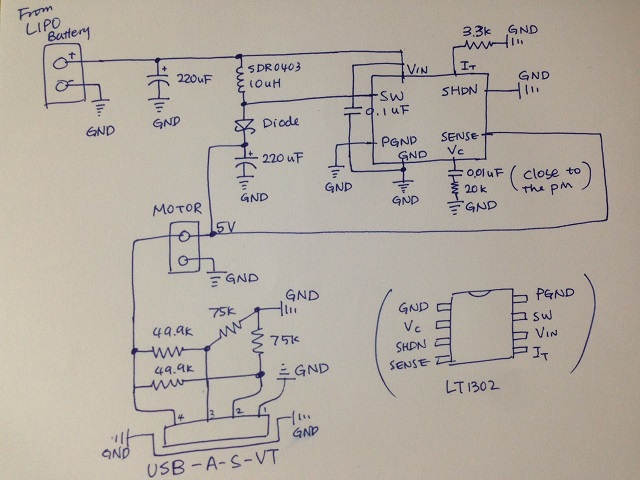 From
LIPO
Battery
+
-
GND
+
220uF
GND
SDR0403
10uH
Diode
+
220uF
GND
3.3k
GND
IT
VIN
SHDN
GND
SW
0.1uF
SENSE
PGND
GND
VC
GND
GND
0.01uF
20k
GND
(close to
the pin)
MOTOR
5V
GND
75k
GND
49.9k
75k
49.9k
GND
4
3
2
1
GND
GND
USB-A-S-VT
GND
VC
SHDN
SENSE
PGND
SW
VIN
IT
LT1302